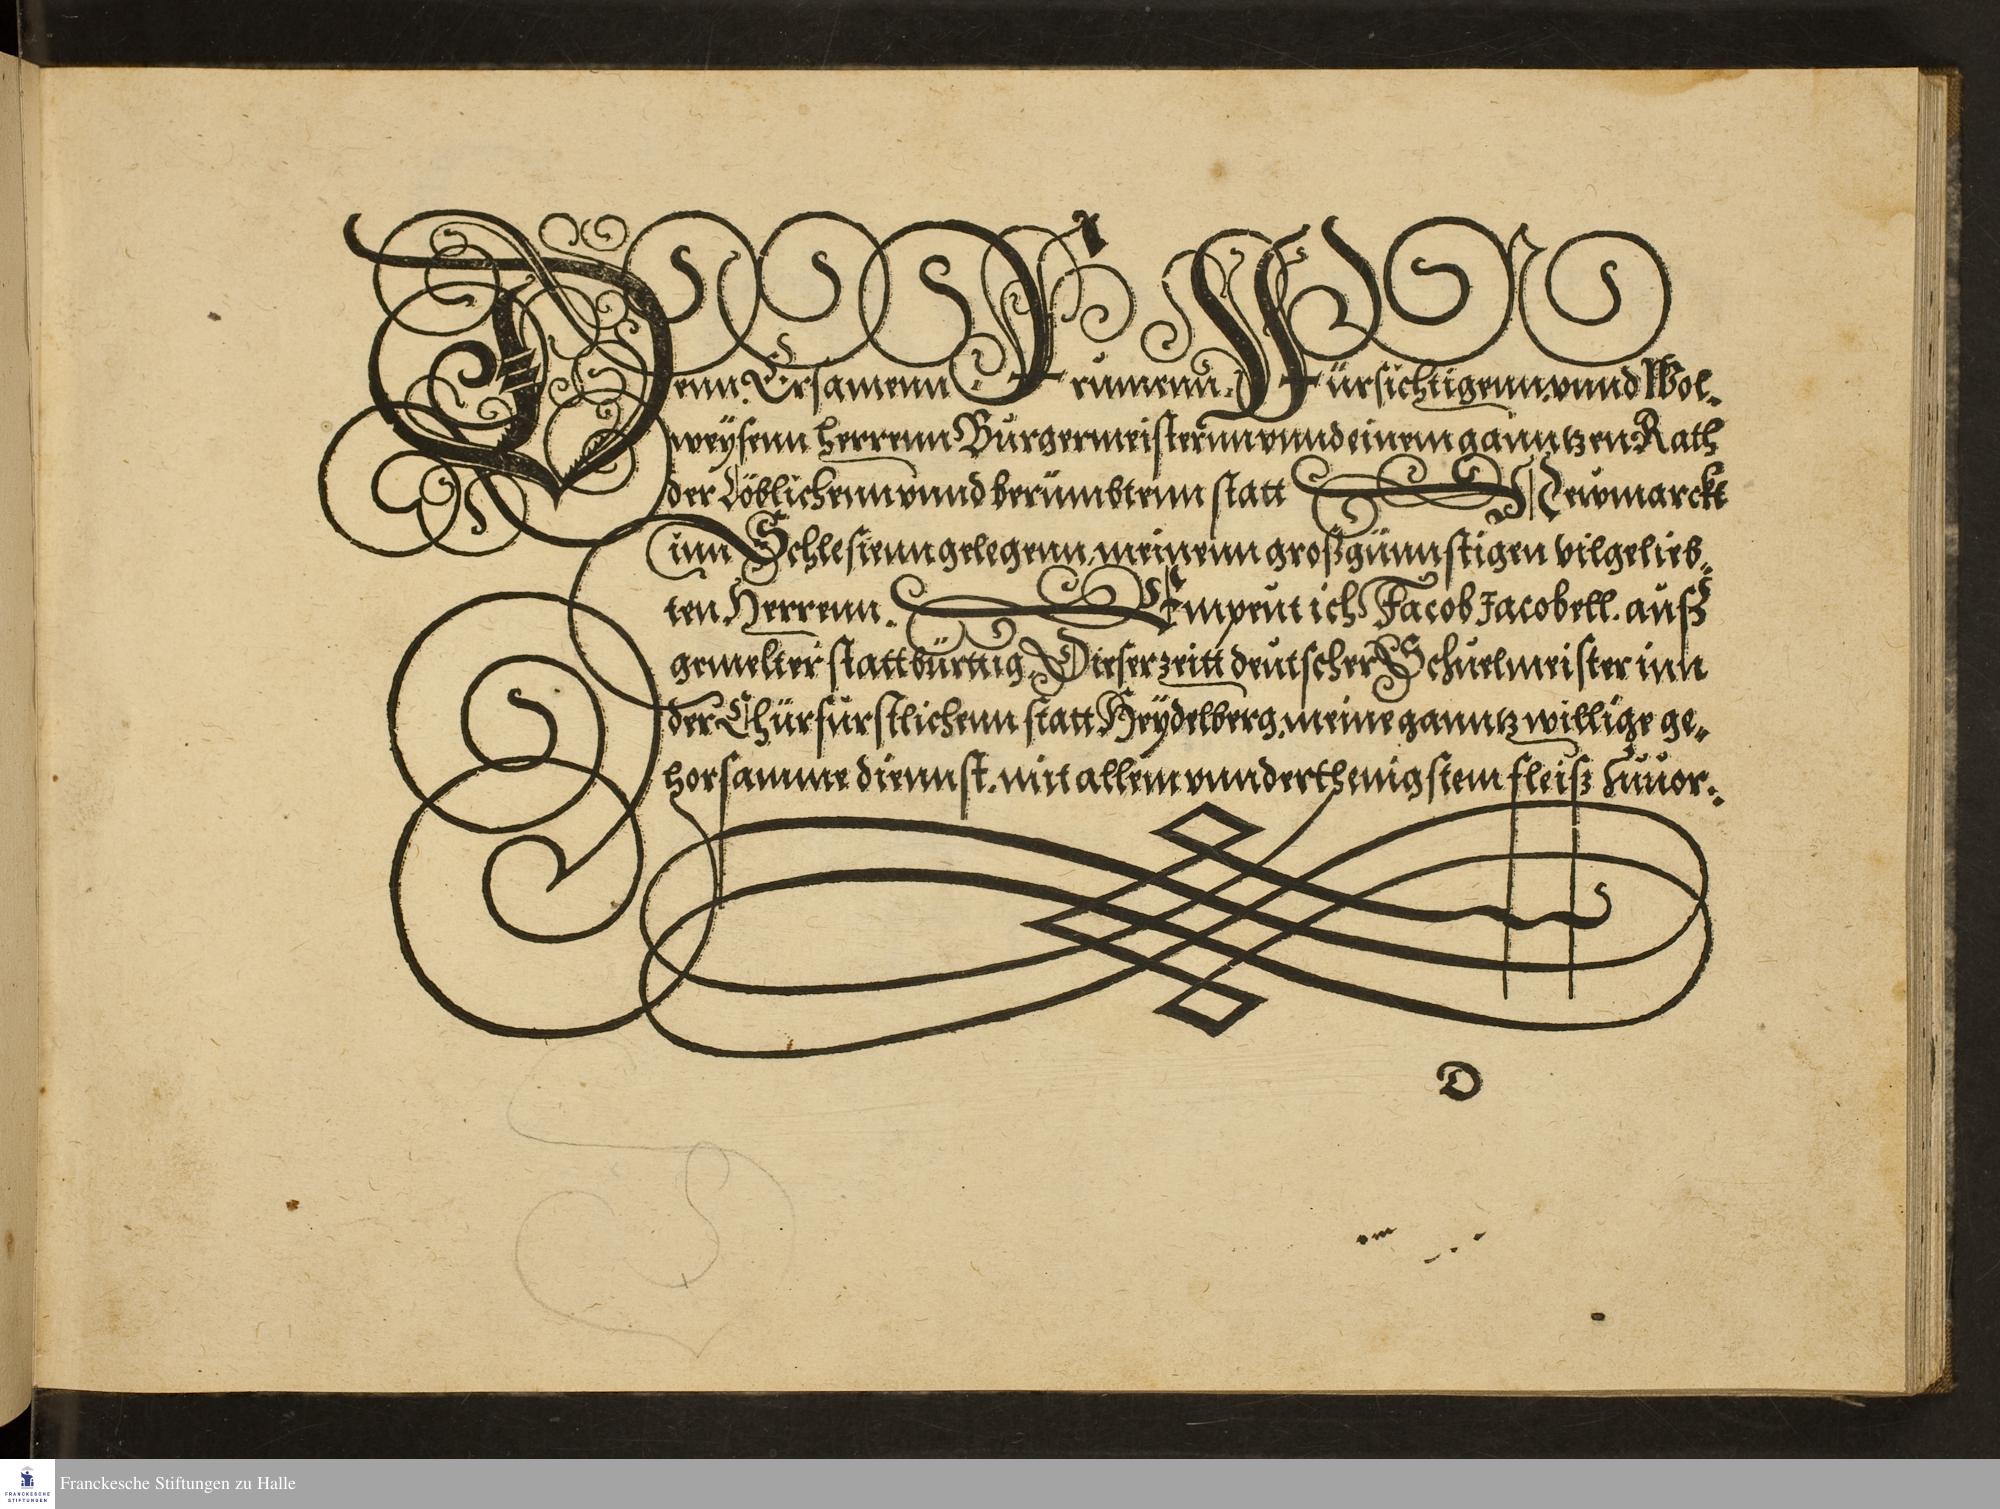 Denn Ersamenn. Frumenn. Fürsichtigenn. vnnd Wol-
weysenn herrenn Burgermeisternn vnnd einem ganntzen Rath
der Löblichenn vnnd berümbtenn statt Newmarckt
inn Schlesienn gelegenn, meinenn großgünnstigen vilgelieb-
ten Herrenn. Empeut ich Jacob Jacobell. auß
gemelter statt bürttig, Dieser zeitt deutscher Schuelmeister inn
der Chürfürstlichenn statt Heydelberg, meine ganntz willige ge-
horsamme diennst. mit allem vnnderthenigstem fleiß zuuor.
D
Franckesche Stiftungen zu Halle
FRANCKESCHE
STIFTUNGEN